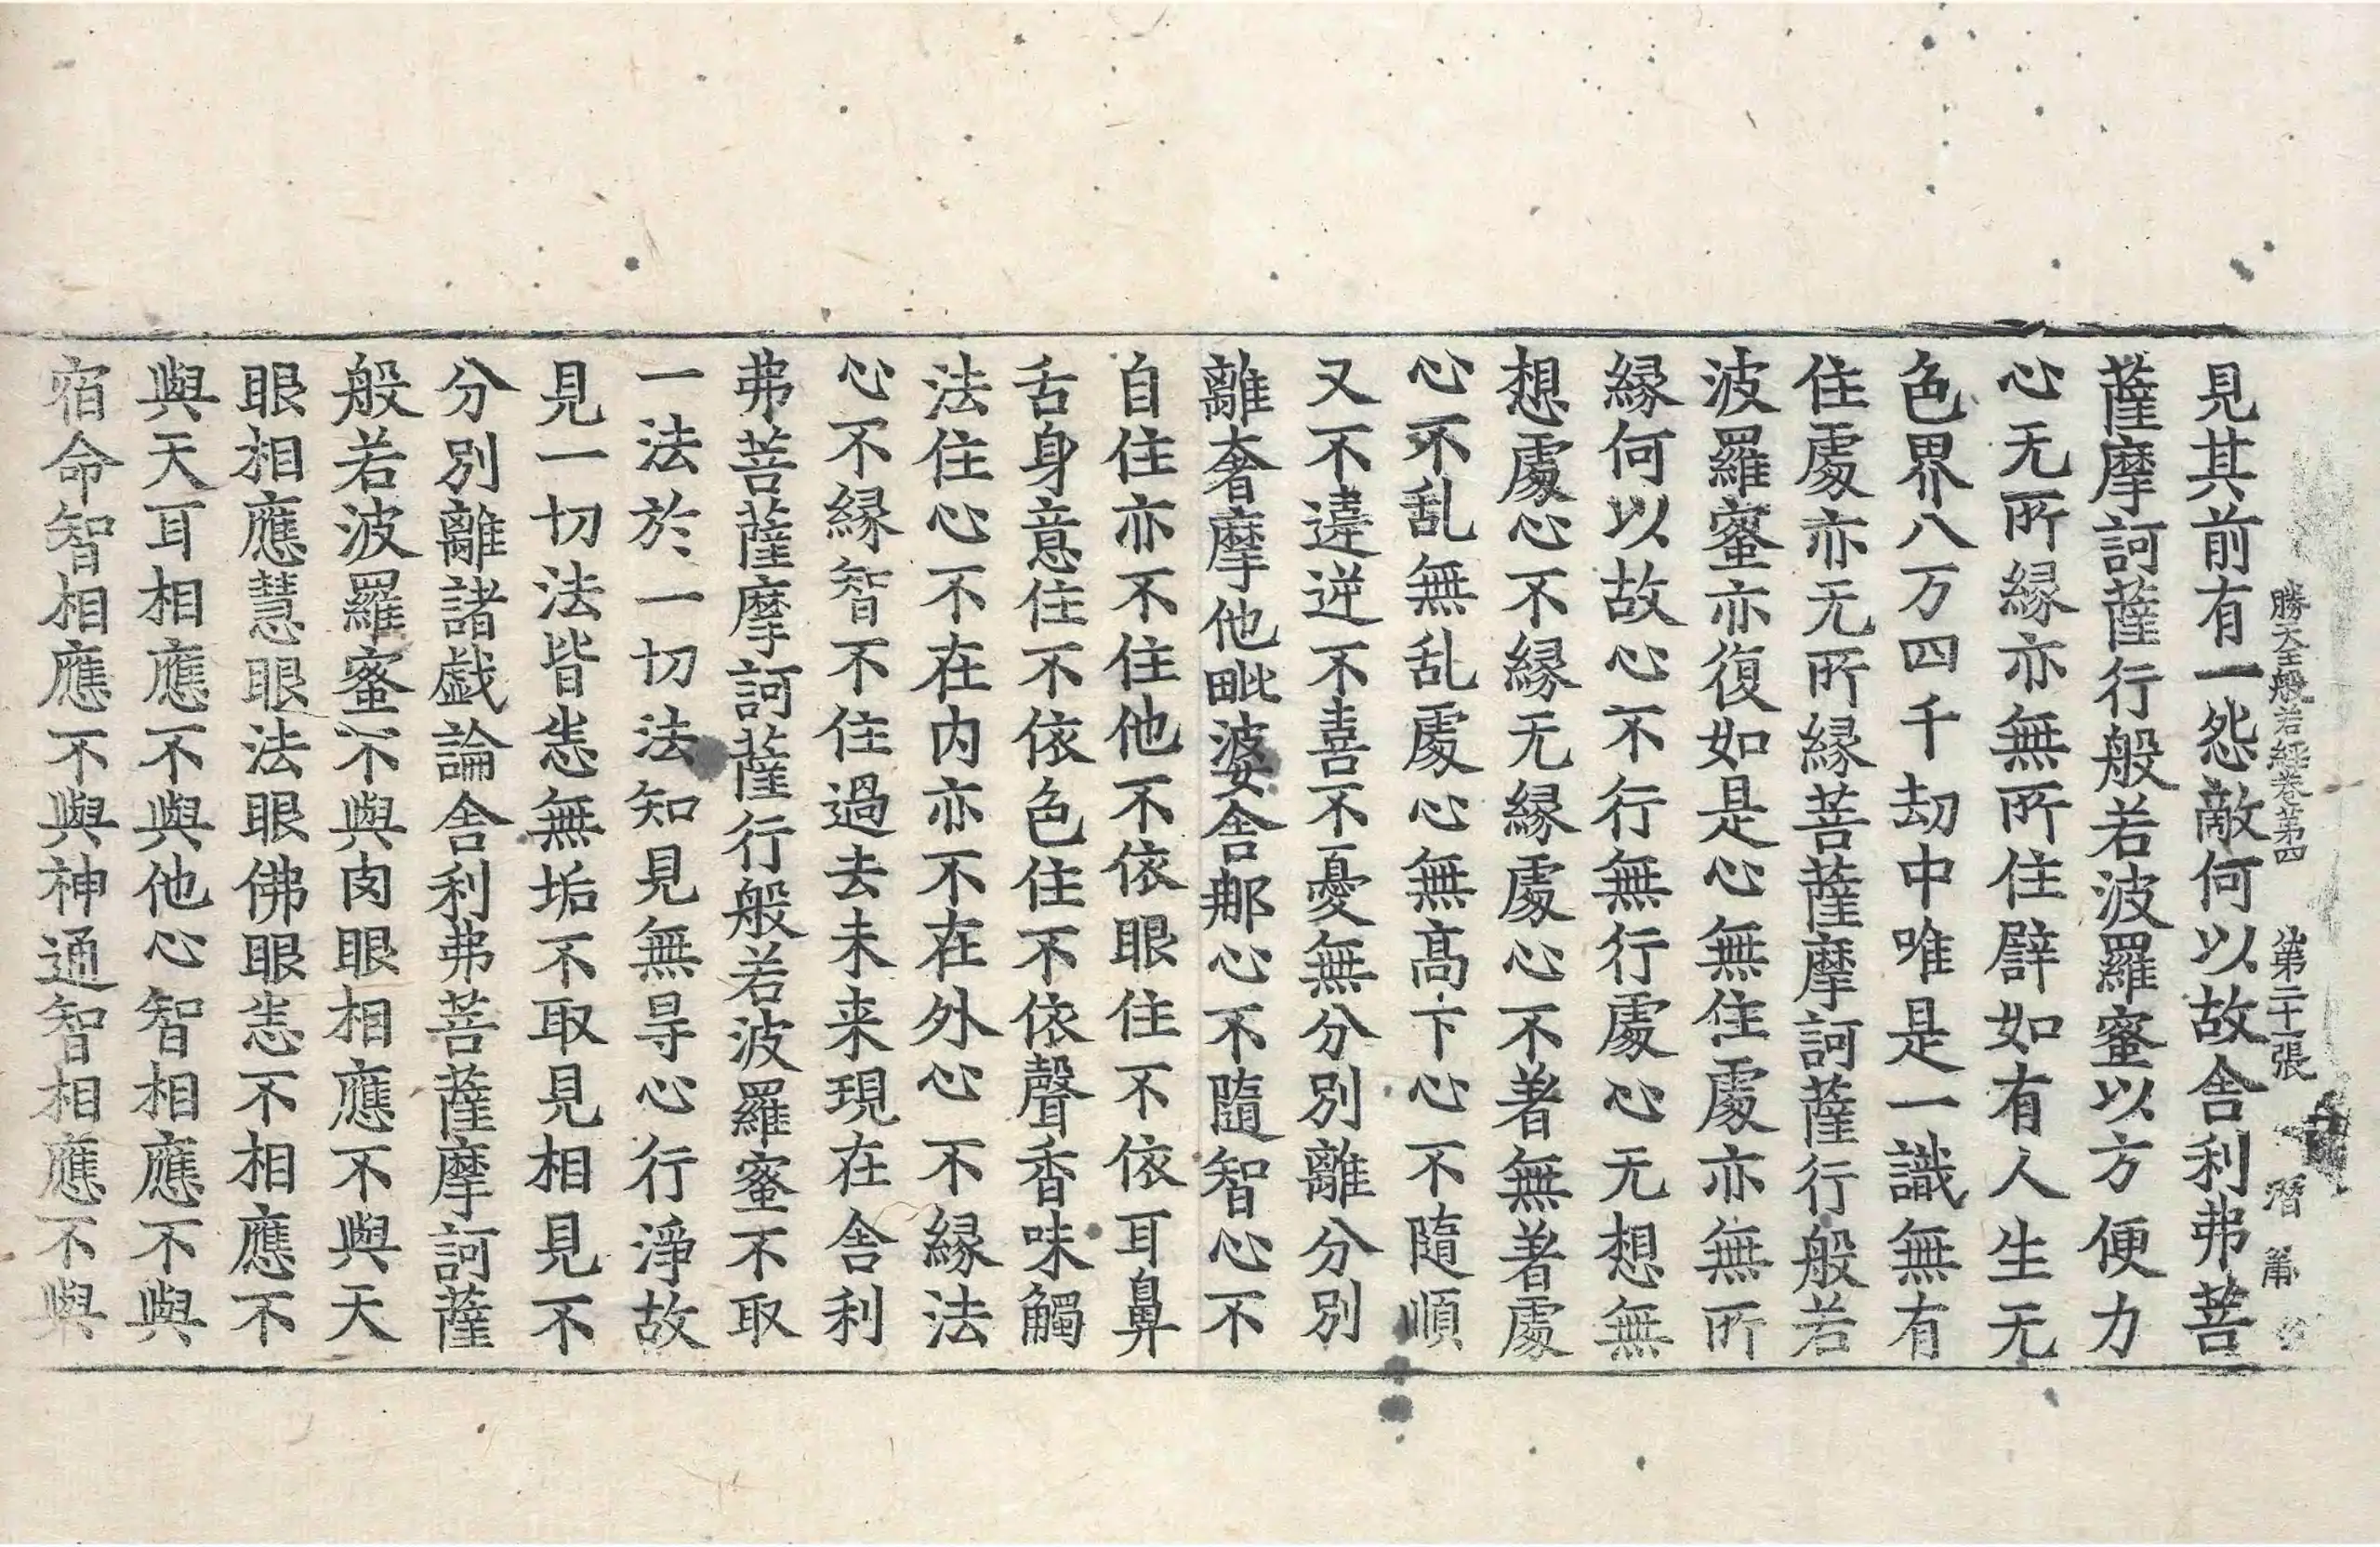 勝天王般若経卷第四 第二十張
見其前有一怨敵何以故舎利弗菩
薩摩訶薩行般若波羅蜜以方便力
心无所縁亦無所住譬如有人生无
色界八万四千劫中唯是一識無有
住處亦无所縁菩薩摩訶薩行般若
波羅蜜亦復如是心無住處亦無所
縁何以故心不行無行處心无想無
想處心不縁无縁處心不著無著處
心不乱無乱處心無髙下心不隨順
又不違逆不喜不憂無分別離分別
離奢摩他毗婆舎那心不隨智心不
自住亦不住他不依眼住不依耳鼻
舌身意住不依色住不依聲香味觸
法住心不在内亦不在外心不縁法
心不縁智不住過去未来現在舎利
弗菩薩摩訶薩行般若波羅蜜不取
一法於一切法知見無㝵心行淨故
見一切法皆悉無垢不取見相見不
分別離諸戯論舎利弗菩薩摩訶薩
般若波羅蜜不與肉眼相應不與天
眼相應慧眼法眼佛眼悉不相應不
與天耳相應不與他心智相應不與
宿命智相應不與神通智相應不與